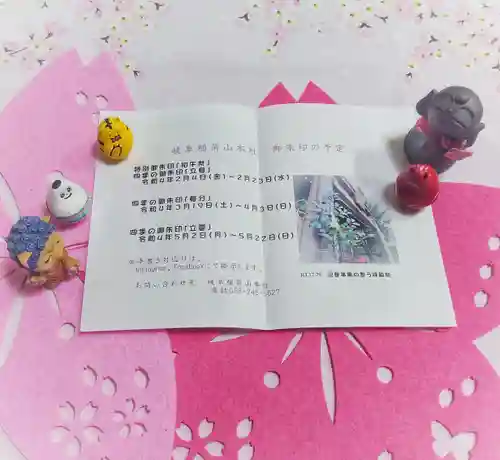 岐阜稲荷山本社 御朱印の予定
特別御朱印「初午祭」
四季の御朱印「立春」
令和4年2月4日(金)~2月23日(水
四季の御朱印「春分」
令和4年3月19日(土)~4月3日(日)
四季の御朱印「立夏」
令和4年5月2日(月)~5月22日(日)
Instagram、Facebookにて
お問い合わせ先 岐阜稲荷山本社